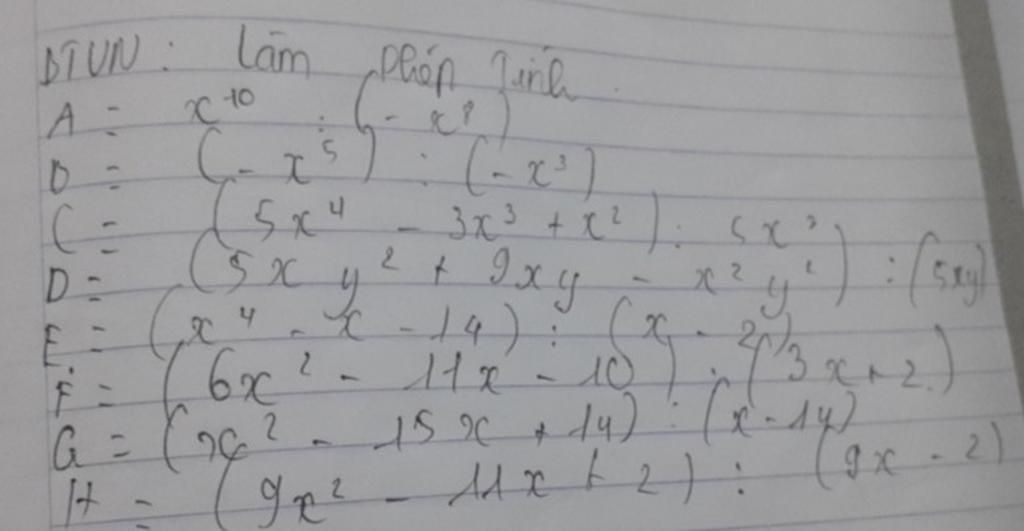 BTVN: Làm phép tính
A = x¹⁰ : (- x⁸)
B = (- x⁵) : (-x³)
C = (5x⁴ - 3x³ + x²) : 5x²
D = (5xy² + 9xy - x²y²) : (5xy)
E = (x⁴ - x - 14) : (x - 2)
F = (6x² - 11x - 10) : (3x + 2)
G = (x² - 15x + 14) : (x - 14)
H = (9x² - 11x + 2) : (9x - 2)